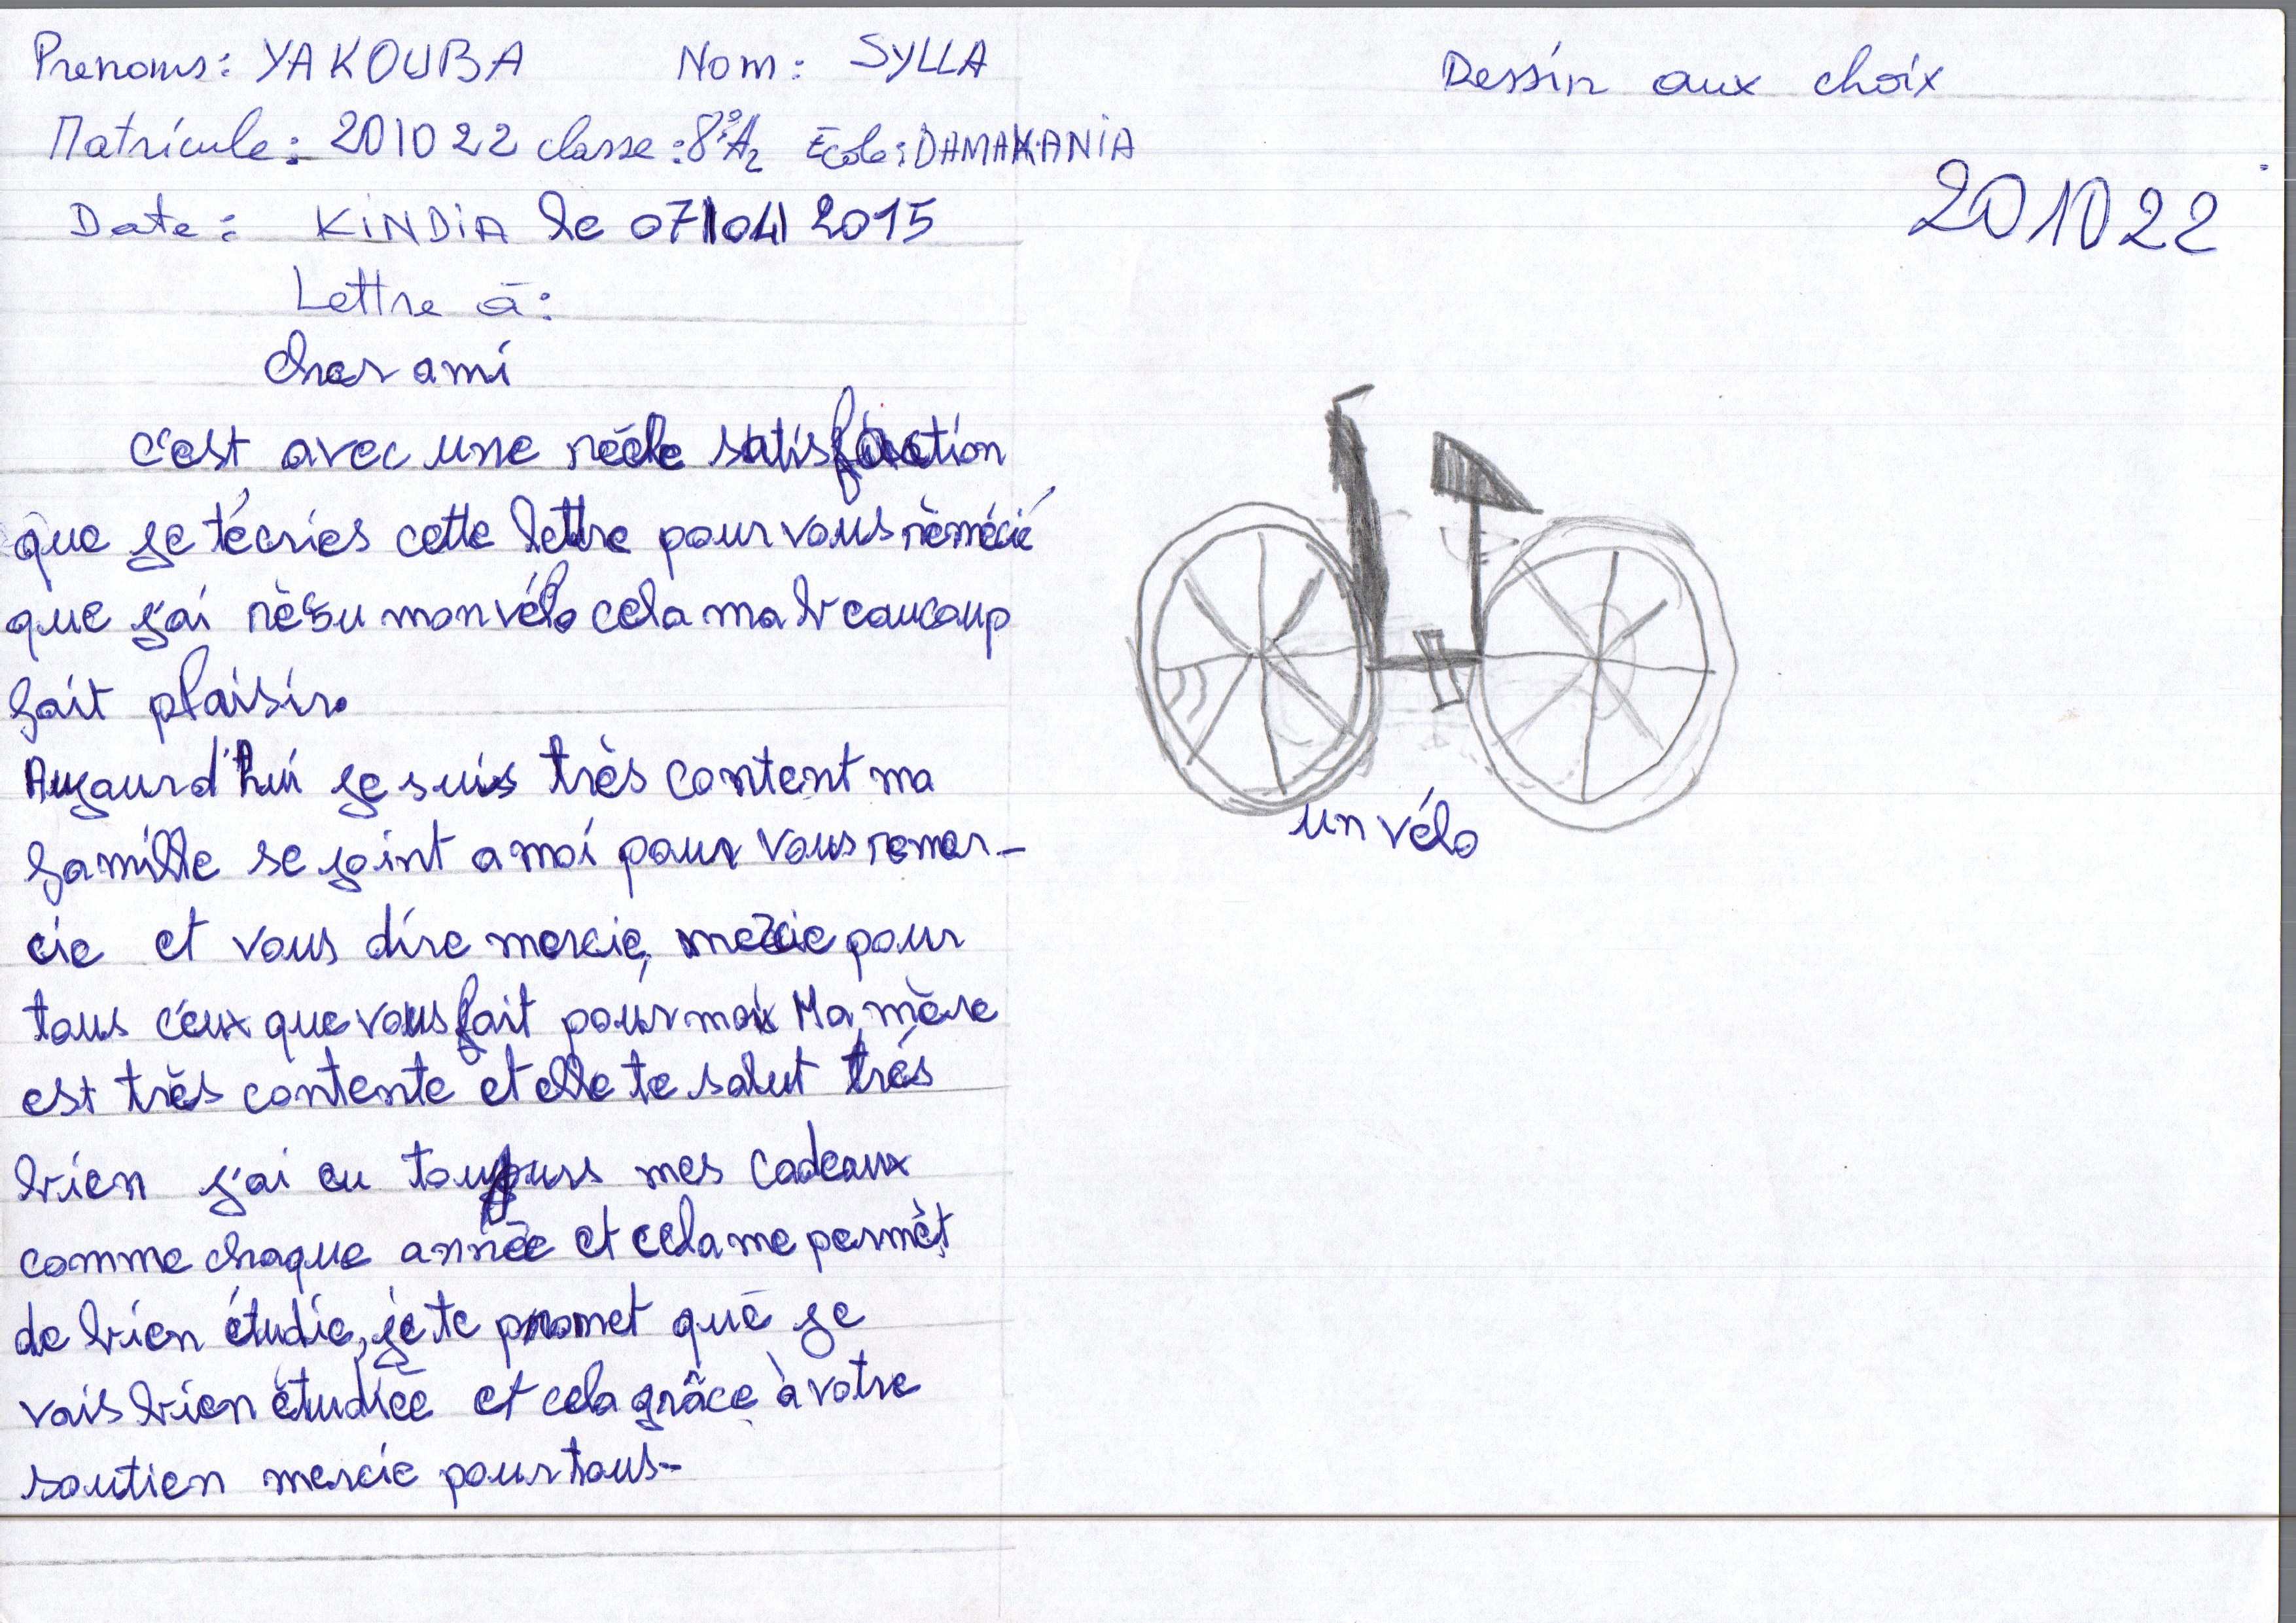 Prenoms: YAKOUBA Nom: SYLLA
Matricule: 201022 classe: 8è A2 Ecole: DAMAKANIA
Date: KiNDiA le 07/04/2015
Lettre à:
cher ami
c'est avec une réele satisfaction
que je t'écries cette lettre pour vous rèmécié
que j'ai rèsu mon vélo cela ma beaucoup
fait plaisir.
Aujourd'hui je suis très content ma
famille se joint a moi pour vous remer-
cie et vous dire mercie, mercie pour
tous ceux que vous fait pour moi Ma mère
est très contente et elle te salut très
bien j'ai eu toujours mes cadeaux
comme chaque année et cela me permèt
de bien étudie, je te promet que je
vais bien étudiée et cela grâce à votre
soutien mercie pour tous-
Dessin aux choix
201022
un vélo